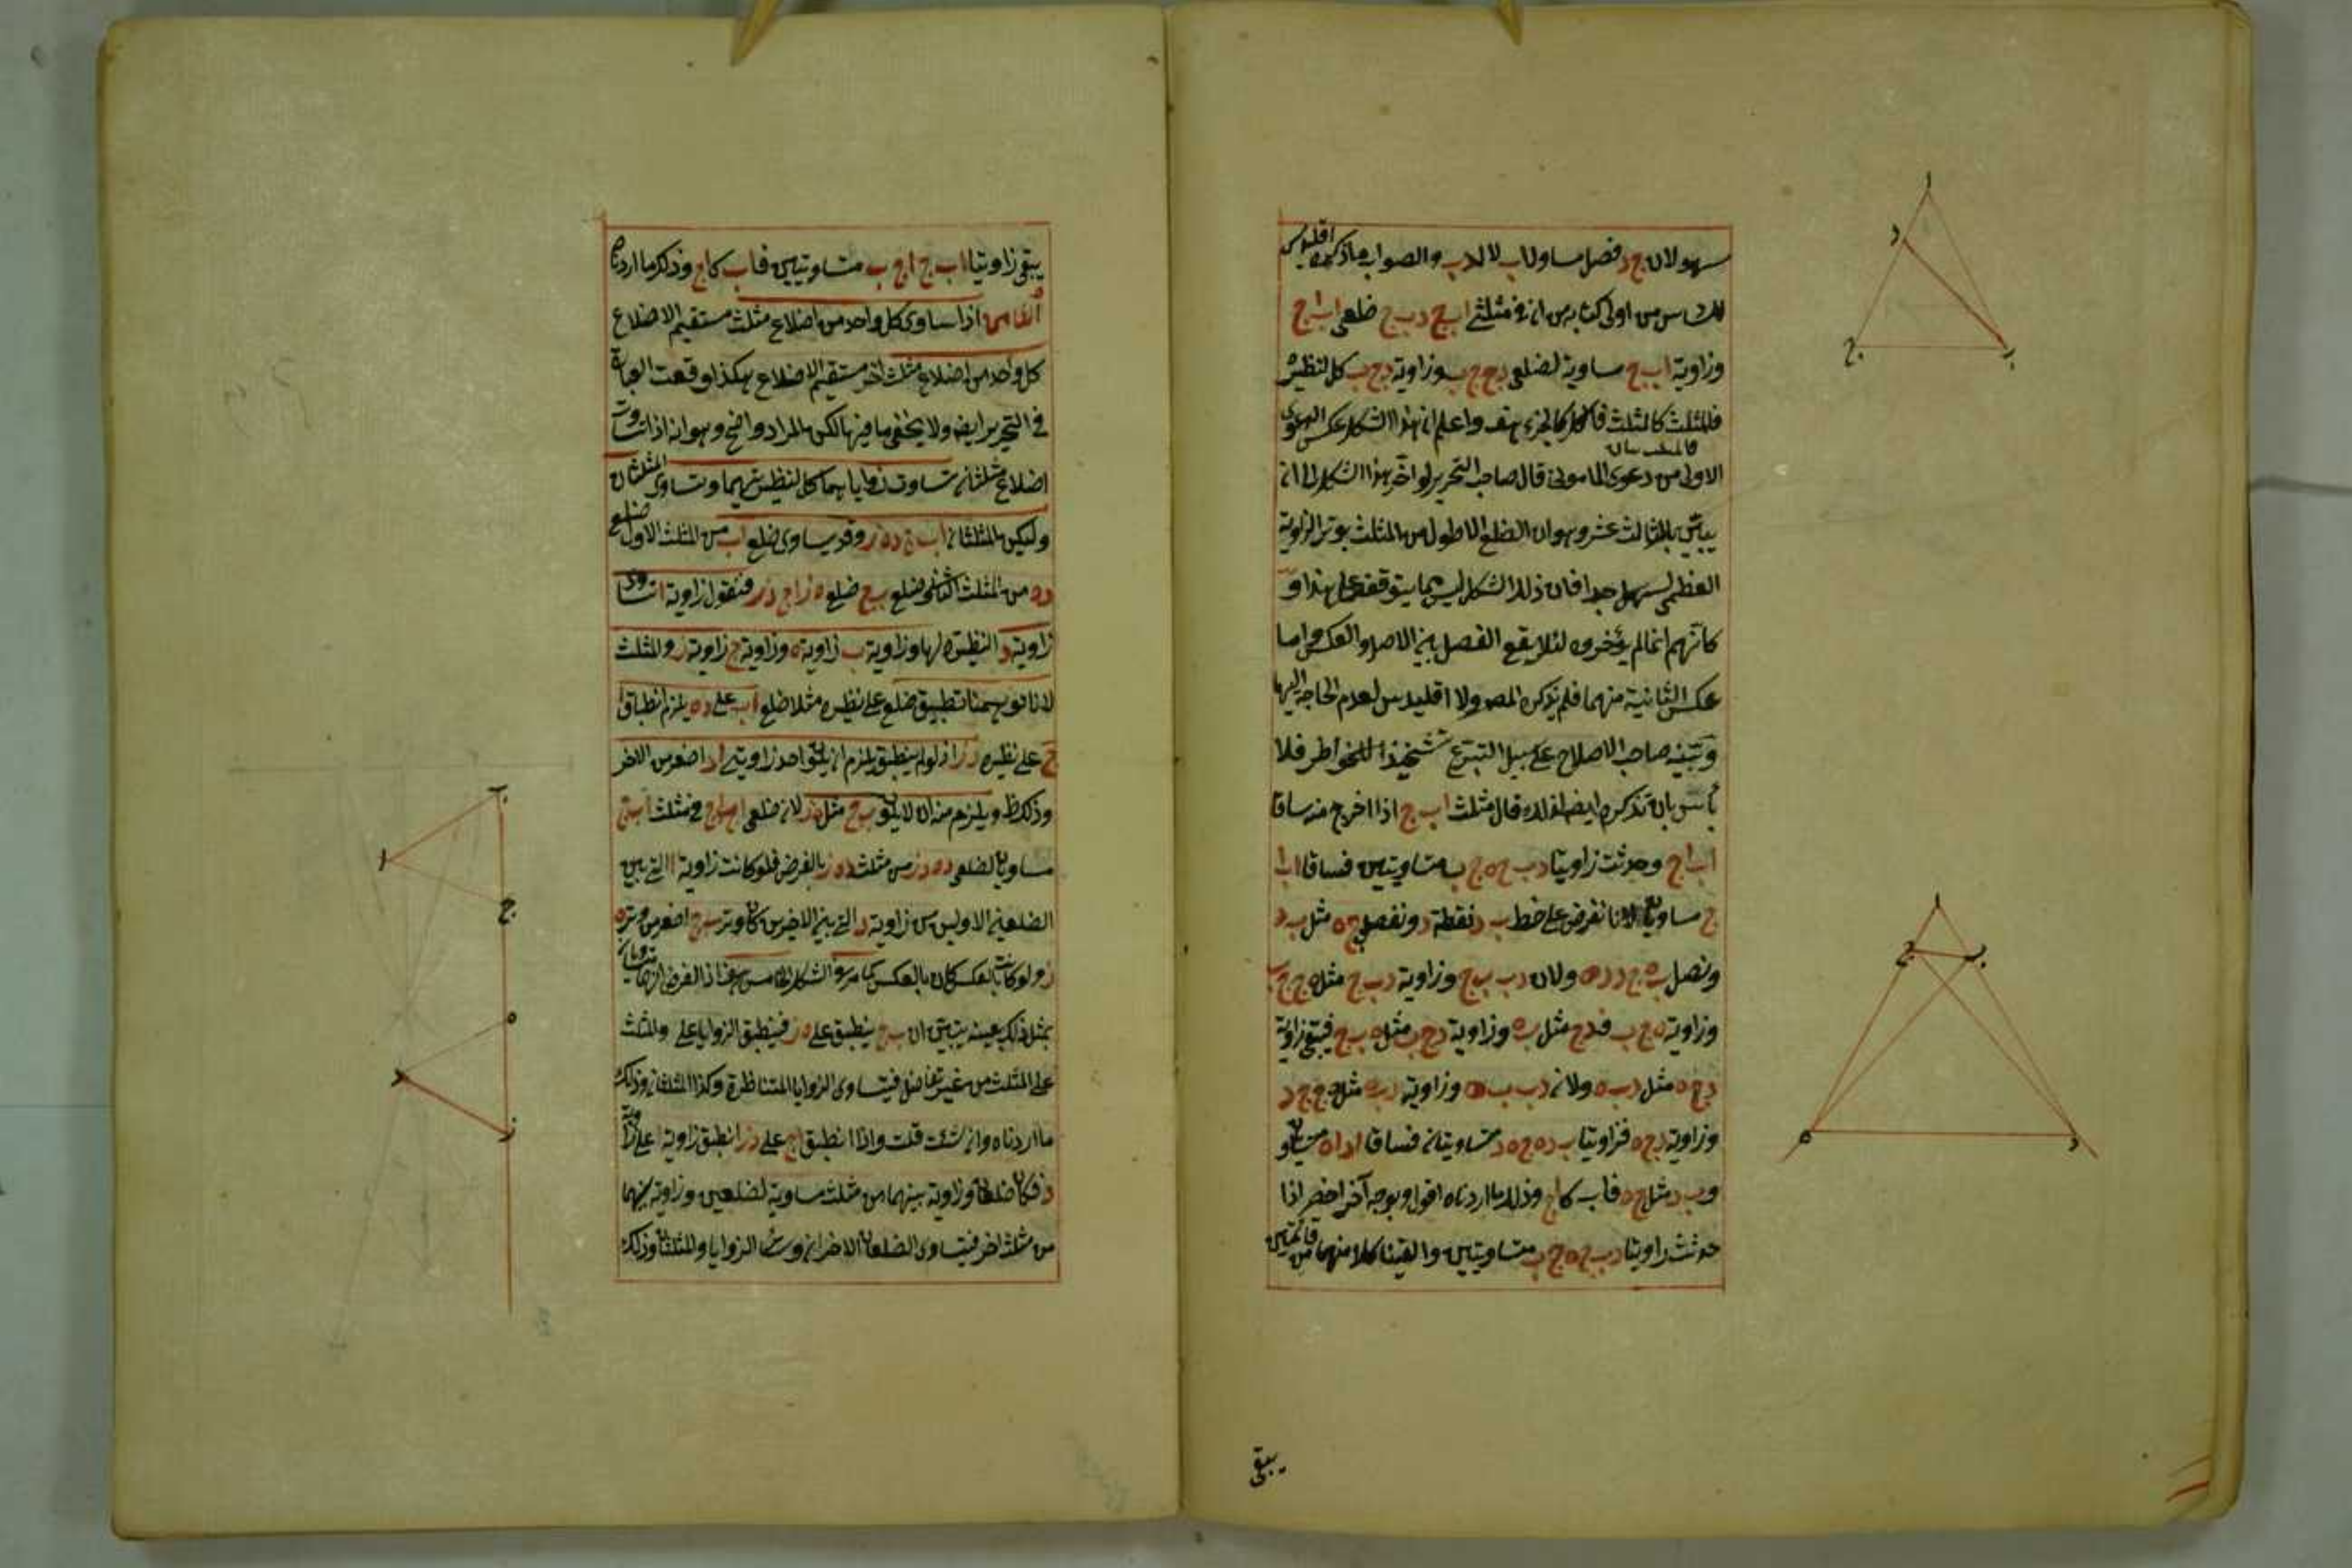 سهو لان ج د فصل مساويا لاب لا لدب والصواب ما ذكره اقليدس
من اولى كتابه من انه في مثلثي اب ج د ب ج ضلعي اب اج
وزاوية اب ج مساوية لضلعي د ج ج ب وزاوية د ج ب كل لنظيره
فالمثلث كالمثلث فالكل كالجزء هف واعلم ان هذا الشكل عكس الدعوى
الاولى من دعوى المامونى قال صاحب التحرير لو اخر هذا الشكل الى ان
يبين بالثالث عشر وهو ان الضلع الاطول من المثلث يوتر الزاوية
العظمى لسهل جدا فان ذلك الشكل ليس مما يتوقف على هذا و
كانهم انما لم يؤخروه لئلا يقع الفصل بين الاصل والعكس واما
عكس الثانية منهما فلم يذكره المص ولا اقليدس لعدم الحاجة اليها
وبينه صاحب الاصلاح على سبيل التبرع تشحيذا للخواطر فلا
باس بان نذكره ايضا قال مثلث اب ج اذا اخرج منه ساقا
اب اج وحدثت زاويتا د ب ج ه ج ب متساويتين فساقا اب ا
ج متساويان لانا نفرض على خط ب د نقطة د ونفصل ج ه مثل ب د
ونصل ب ه ج د د ه ولان د ب ب ج وزاوية د ب ج مثل ه ج ج ب
وزاوية ه ج ب فدج مثل ب ه وزاوية د ج ب مثل ه ب ج فيبقى زاوية
د ج ه مثل د ب ه ولان د ب ب ه وزاوية د ب ه مثل ه ج ج د
وزاوية د ج ه فزاويتا ب د ه ج ه د متساويتان فساقا اد اه متساويان
وب د مثل ج ه فاب كاج وذلك ما اردناه اقول وبوجه آخر اخصر اذا
حدثت زاويتا د ب ج ه ج ب متساويتين والقينا كلا منهما من قائمتين
يبقى
يبقى زاويتا اب ج اج ب متساويتين فاب كاج وذلك ما اردناه
اذا ساوى كل واحد من اضلاع مثلث مستقيم الاضلاع
كل واحد من اضلاع مثلث اخر مستقيم الاضلاع هكذا وقعت العبارة
في التحرير ايضا ولا يخفى ما فيها لكن المراد واضح وهو انه اذا تساوت
اضلاع مثلثان تساوت زواياهما كل لنظيرتهما وتساوى المثلثان
وليكن المثلثان اب ج د ه ز وقد يساوى ضلع اب من المثلث الاول ضلع
د ه من المثلث الثانى ضلع ب ج ضلع ه ز اج د ز فنقول زاوية ا تساوى
زاوية د النظيرة لها وزاوية ب زاوية ه وزاوية ج زاوية ز والمثلث
لانا توهمنا تطبيق ضلع على نظيره مثلا ضلع اب على د ه يلزم انطباق ا
ج على نظيره د ز اذ لو لم ينطبق يلزم ان يكون احد زاويتي ا د اصغر من الاخر
وذلك ويلزم منه ان لا يكون ب ج مثل ه ز لان ضلعي اب اج في مثلث اب ج
مساويا لضلعي د ه د ز من مثلث د ه ز بالفرض فلو كانت زاوية ا التي بين
الضلعين الاولين من زاوية د التي بين الاخيرين كان وتر ب ج اصغر من وتر ه
ز ولو كانت بالعكس كان بالعكس كما مر هف اذ الفرض انهما متساويان
بمثل ذلك بعينه يتبين ان ب ج ينطبق على ه ز فينطبق الزوايا على والمثلث
على المثلث من غير تفاضل فيتساوى الزوايا المتناظرة وكذا المثلثان وذلك
ما اردناه وان شئت قلت واذا انطبق اج على د ز انطبق زاوية ا على زاوية
د فكان ضلعان وزاوية بينهما من مثلث مساوية لضلعين وزاوية بينهما
من مثلث اخر فيتساوى الضلعان الاخران وسائر الزوايا والمثلثان وذلك